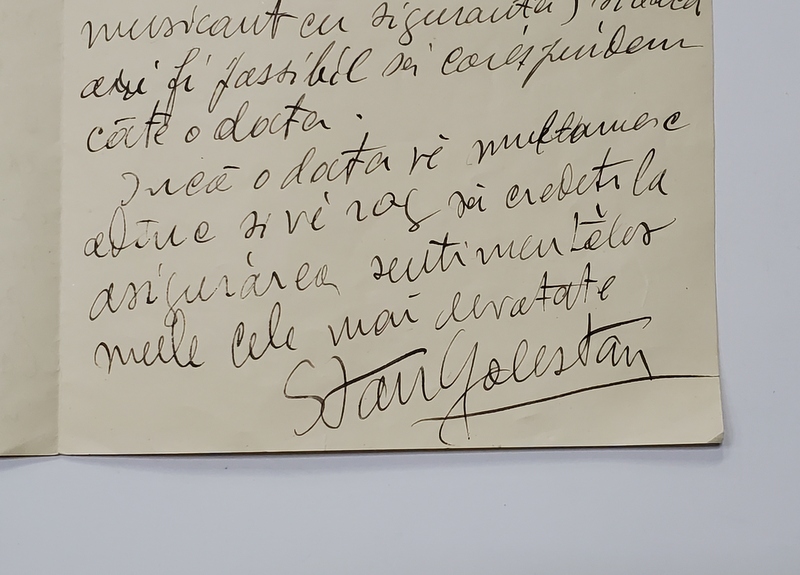 musicant cu siguranta) si daca
ari fi possibil să corespundem
câte o data.
Incă o data vĕ multamesc
adînc si vĕ rog să credeti la
asigurărea sentimentĕlor
mele cele mai devotate
Stan Golestan